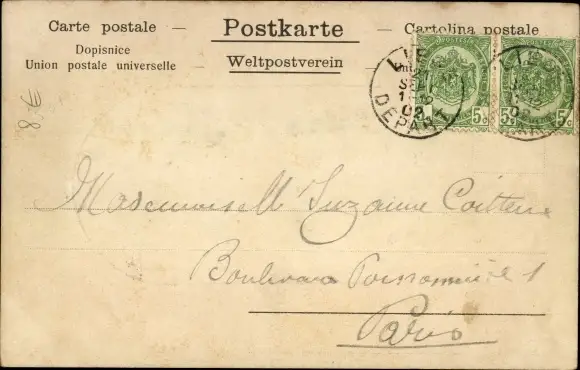 Carte postale — Postkarte — Cartolina postale
Dopisnice
Union postale universelle
Weltpostverein
LIE
DEPART
5c 5c
8 €
Mademoiselle Suzanne
Boulevard Poissonnière 1
Paris